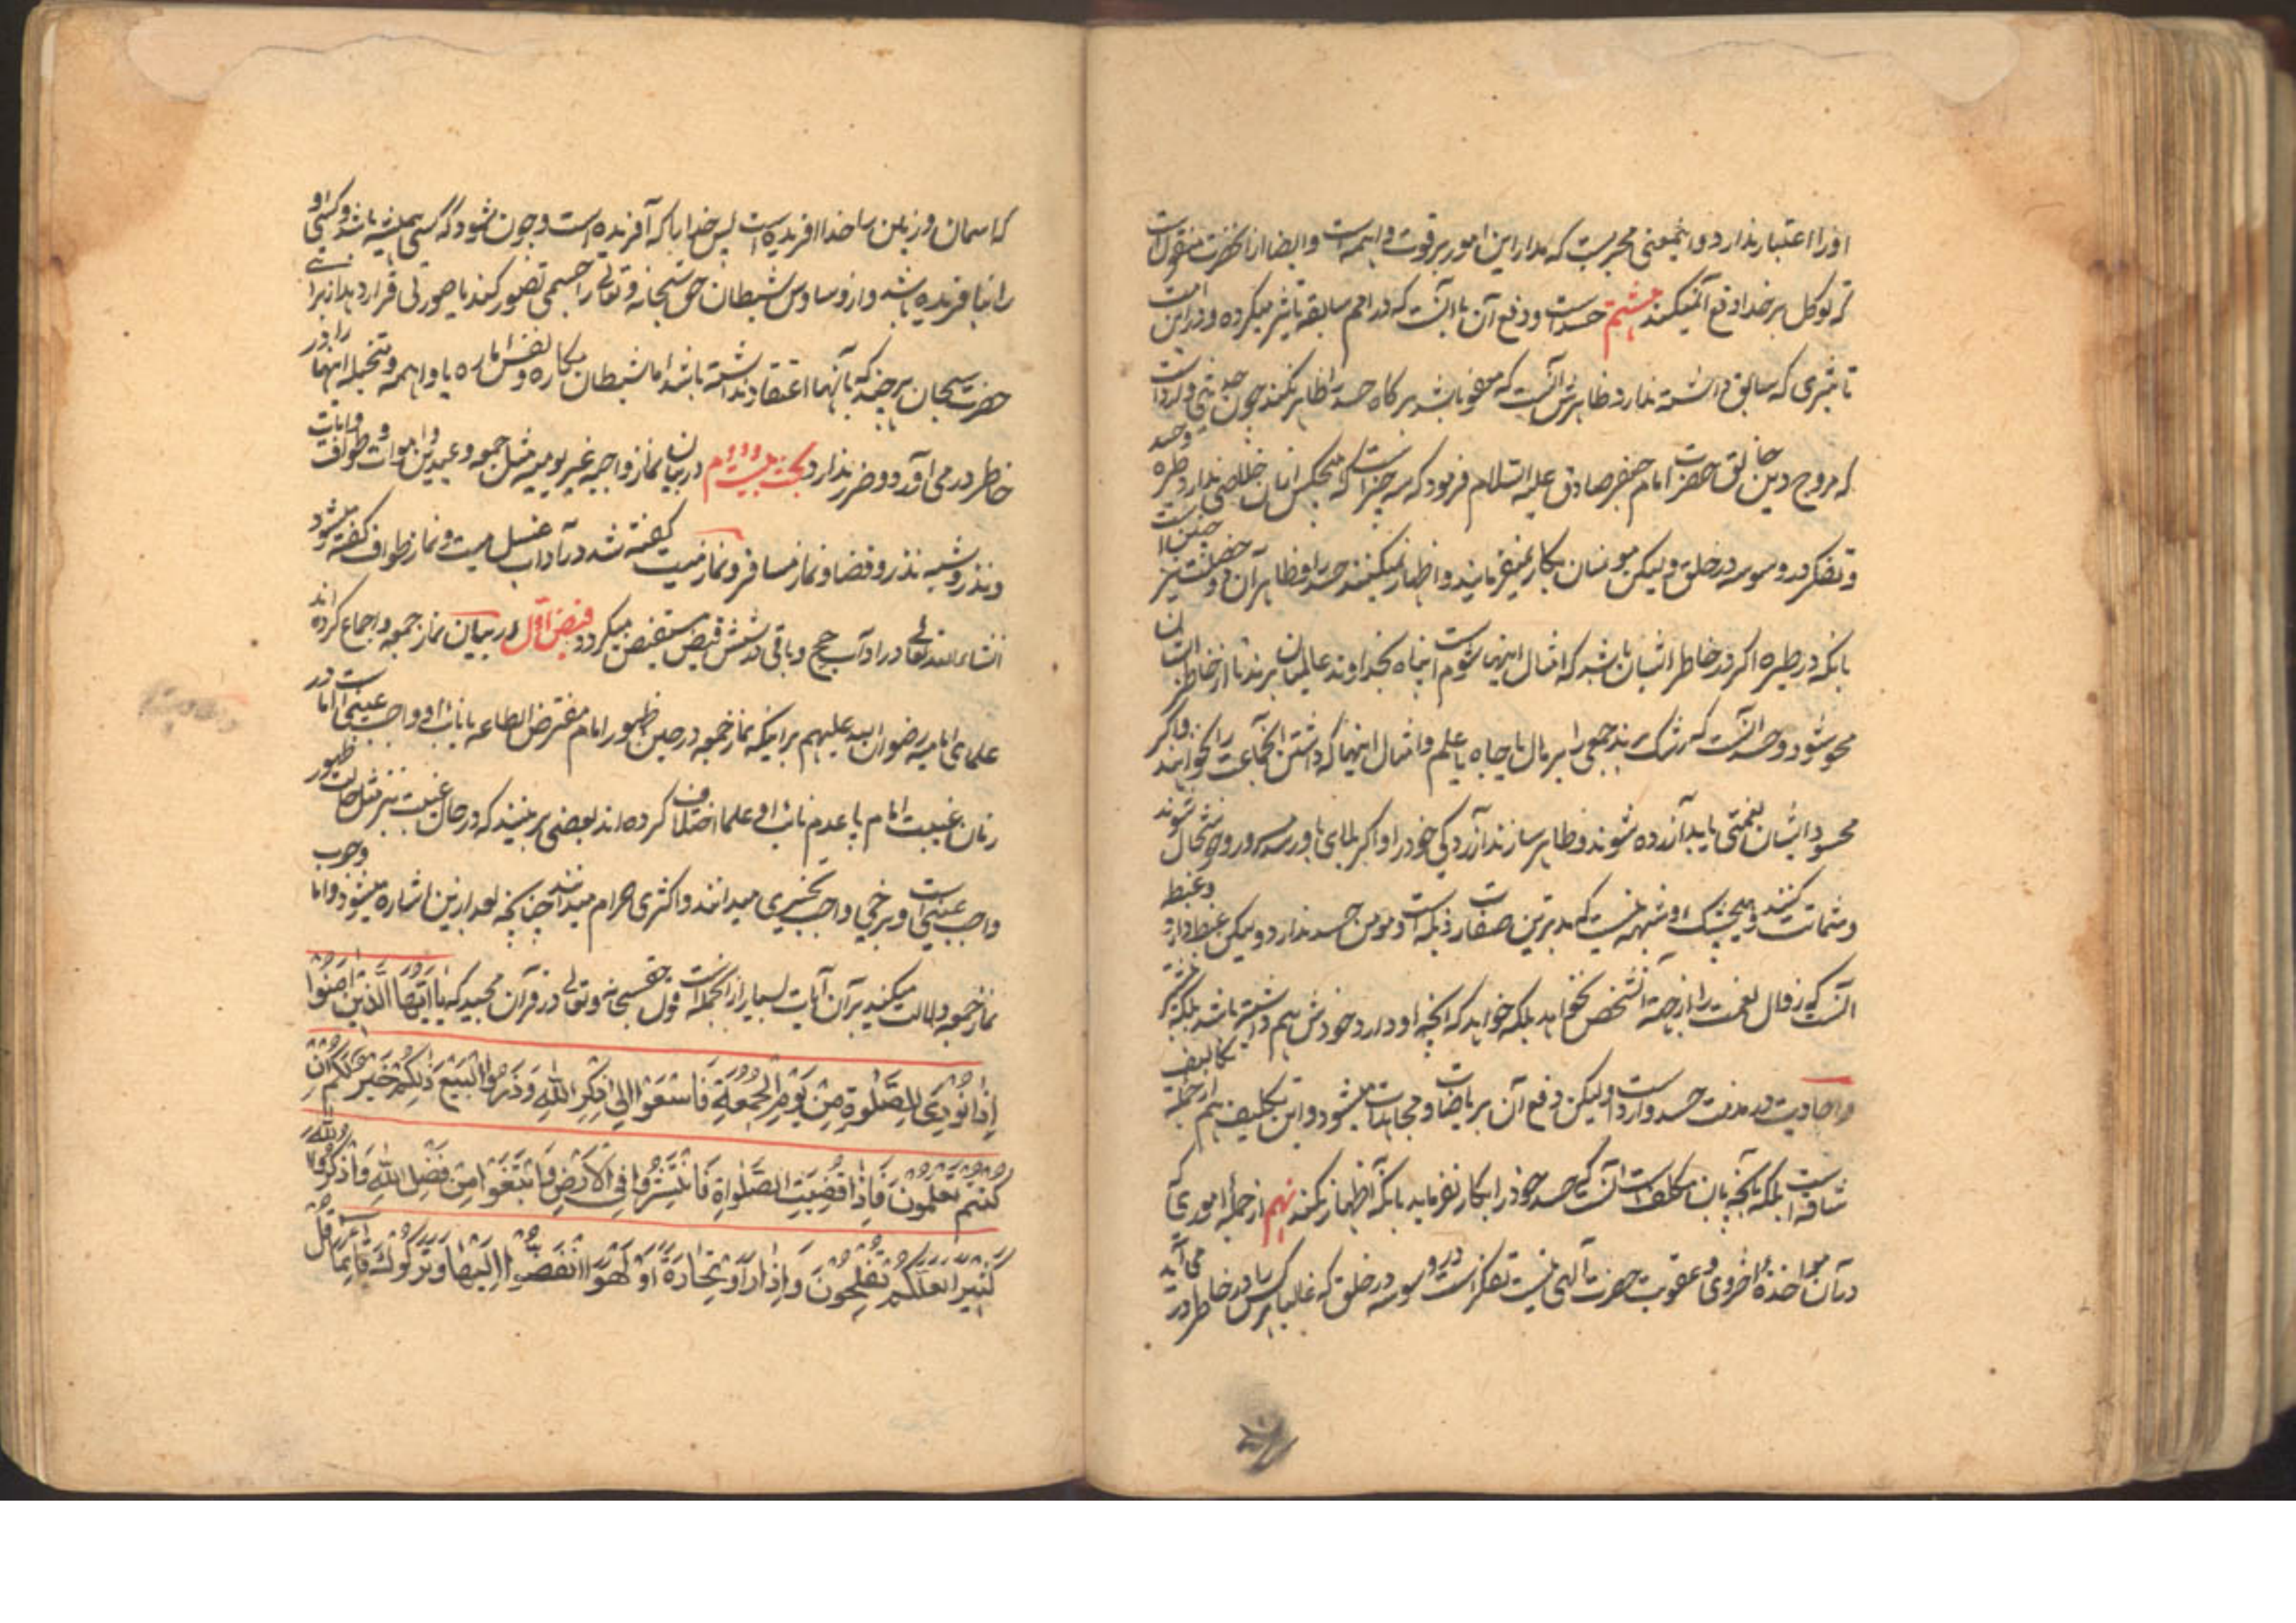 اورا اعتبار ندارد و اینمعنی مجربست که مدار این امور بر قوت واهمه است و ایضا از آنحضرت منقول است
که توکل بر خدا دفع آن میکند هشتم حسد است و دفع آن باآنست که در امم سابقه تاثیر میکرده و در این امت
تاثیری که سابق داشته ندارد و ظاهرش آنست که معفو باشد هر گاه حسد را ظاهر نکند چون جد نبی و لرد است
که مروج دین خالق حضرت امام جعفر صادق علیه السلام فرمود که سه چیز است که هیچکس از آن خلاصی ندارد طیره و حسد
و تفکر در وسوسه در خلق و لیکن مومنان بکار نمیفرمایند و اظهار نمیکنند حسد را و ظاهر آن دو خصلت نیز چنین است
بانکه در طیره اگر در خاطر ایشان باشد که امثال اینها شوم است پناه بخداوند عالمیان برند تا از خاطر ایشان
محو شود و حسد آنست که رشک برند جمعی را بر مال یا جاه یا علم و امثال اینها که داشتن آنجماعت را نخواهند و اگر
محسود ایشان نعمتی یابد آزرده شوند و ظاهر سازند آزردگی خود را و اگر بلای باو رسد مسرور و خوشحال شوند
و شماتت کنند و هیچ شک و شبهه نیست که بدترین صفات ذمیمه است و مومن حسد ندارد و لیکن غبطه دارد و غبطه
آنست که زوال نعمت را از جهة آنشخص نخواهد بلکه خواهد که آنچه او دارد خودش هم داشته باشد بلکه بیشتر
و احادیث در مذمت حسد وارد است و لیکن دفع آن بریاضات و مجاهدات میشود و این تکلیف هم از جمله تکالیف
شاقه است بلکه آنچه بان مکلف است آنست که حسد خود را بکار نفرماید بانکه اظهار نکند نهم از جمله اموری که
در آن مواخذهٔ اخروی و عقوبت حضرت الهی نیست تفکر است در وسوسه در خلق که غالبا هر کس را در خاطر در می آید
که اسمان و زمین را خدا افریده است پس خدا را که آفریده است و چون شود که کسی همیشه باشد و کسی او
را نیافریده باشد و از وساوس شیطان حق سبحانه و تعالی را جسمی تصور کند یا صورتی قرار دهد از برای
حضرت سبحان هر چند که بآنها اعتقاد نداشته باشد اما شیطان مکاره و نفس اماره یا واهمه و متخیله اینها را در
خاطر در می آورد و ضرر ندارد بحث بیست و دوم در بیان نماز واجبه غیر یومیه مثل جمعه و عیدین و اموات و طواف و ایات
و نذر و شبه نذر و قضا و نماز مسافر و نماز میت گفته شد در آداب غسل میت و نماز طواف گفته میشود
انشاء الله تعالی در اداب حج و باقی در شش فیض مستفیض میگردد فیض اول در بیان نماز جمعه و اجماع کرده اند
علمای امامیه رضوان الله علیهم بر اینکه نماز جمعه در حین ظهور امام مفترض الطاعه یا نایب او واجب عینی است اما در
زمان غیبت امام یا عدم نایب او علما اختلاف کرده اند بعضی برینند که در حال غیبت نیز مثل حالت ظهور
واجب عینی است و برخی واجب تخییری میدانند و اکثری حرام میدانند چنانکه بعد ازین اشاره میشود و اما وجوب
نماز جمعه دلالت میکند بر آن آیات بسیار از انجمله است قول حقسبحانه و تعالی در قرآن مجید که یا ایها الذین امنوا
إذا نودي للصلوة من يوم الجمعة فاسعوا الى ذكر الله وذروا البيع ذلكم خير لكم ان
كنتم تعلمون فاذا قضيت الصلواة فانتشروا في الارض وابتغوا من فضل الله واذكروا الله
كثيرا لعلكم تفلحون واذا رأو تجارة او لهوا انفضوا اليها وتركوك قايما قل